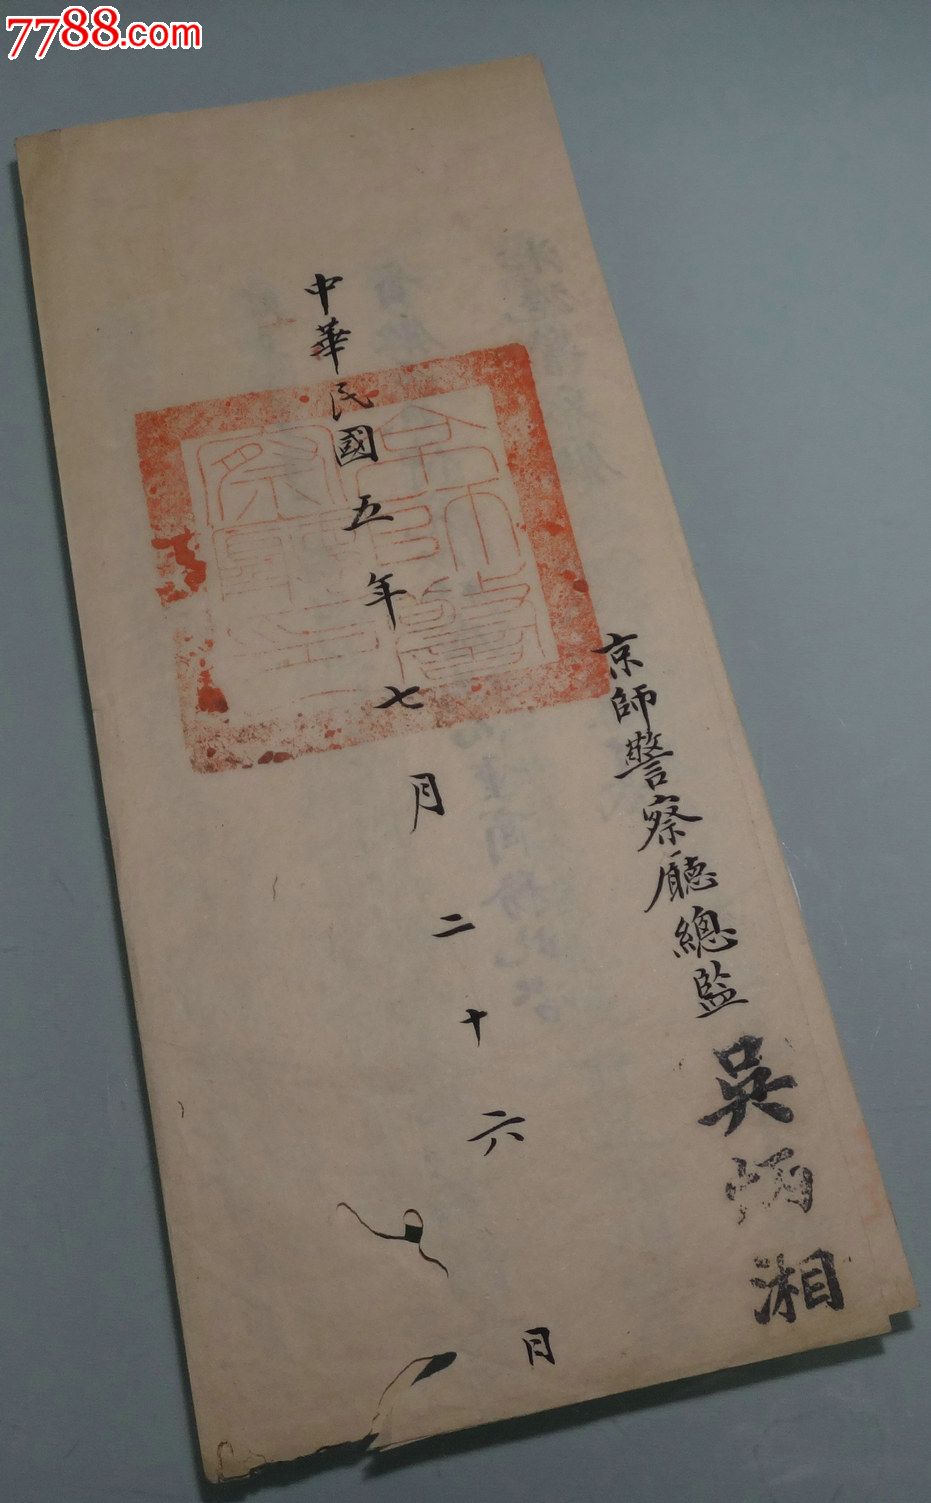 7788.com
京師警察廳總監吳炳湘
中華民國五年七月二十六日
京師警
察廳印